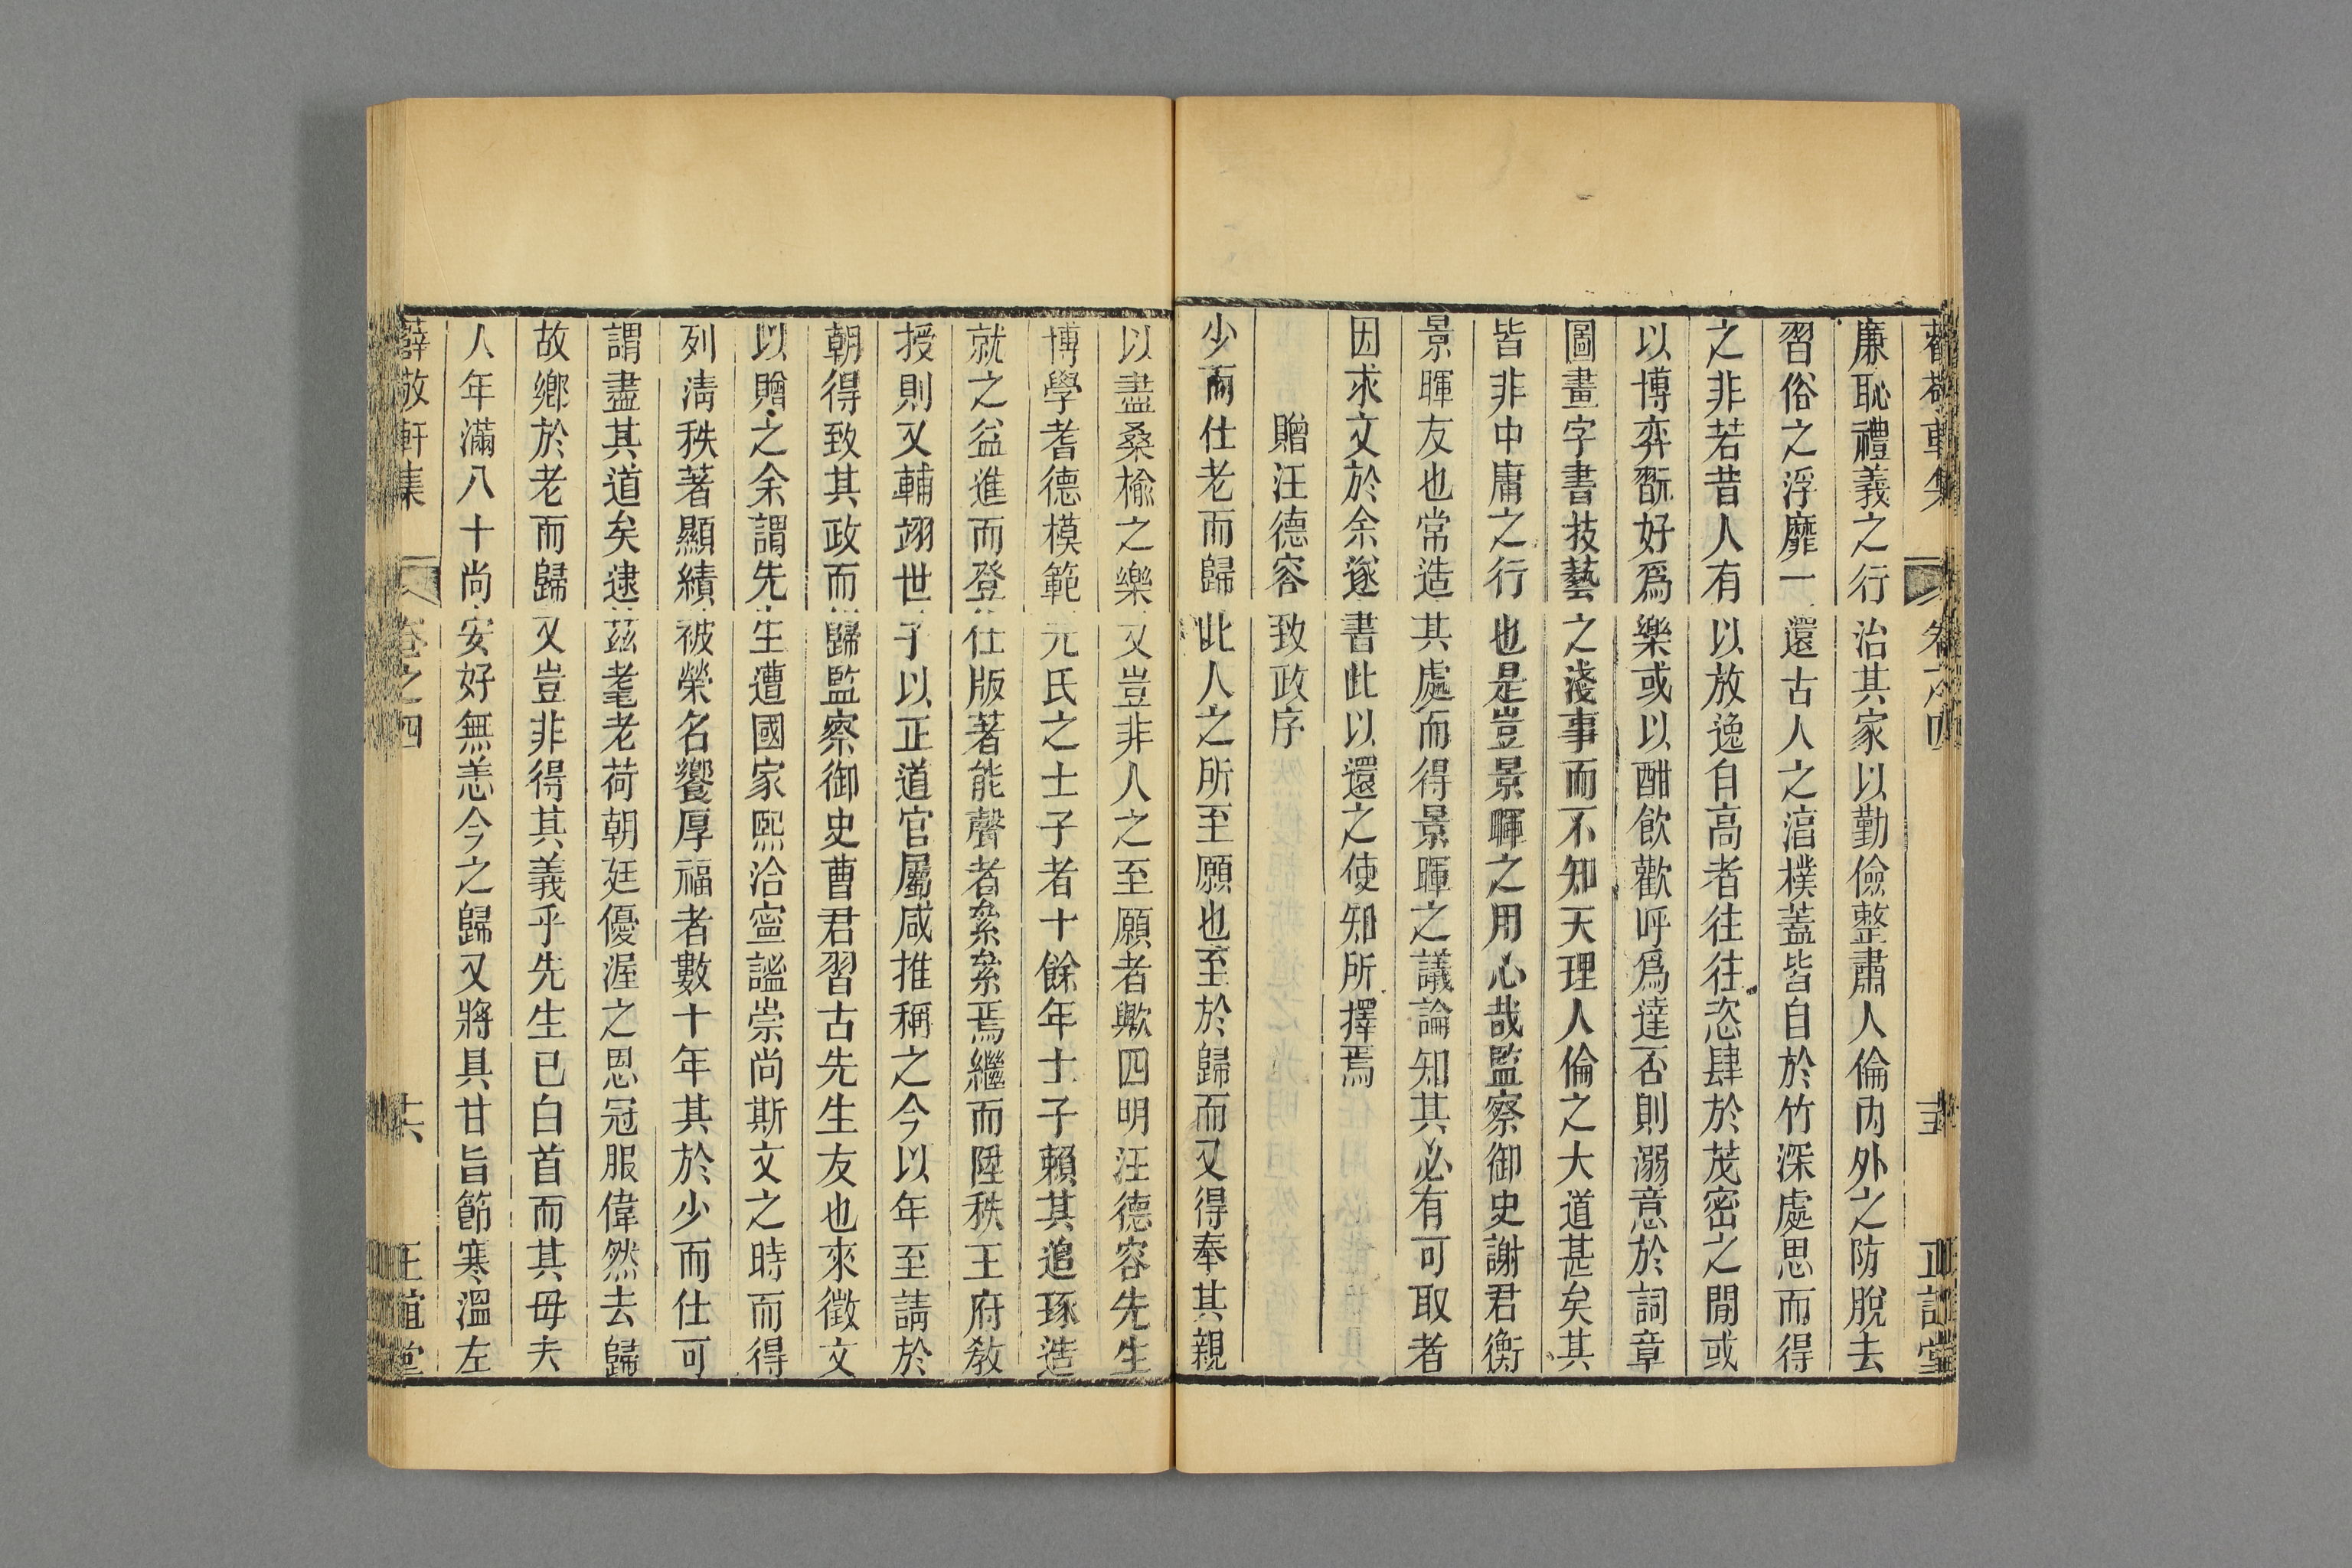 廉恥禮義之行治其家以勤儉整肅人倫內外之防脫去
習俗之浮靡一還古人之湻樸蓋皆自於竹深處思而得
之非若昔人有以放逸自高者往往恣肆於茂密之閒或
以博弈翫好爲樂或以酣飲歡呼爲達否則溺意於詞章
圖畫字書技藝之淺事而不知天理人倫之大道甚矣其
皆非中庸之行也是豈景暉之用心哉監察御史謝君衡
景暉友也常造其處而得景暉之議論知其必有可取者
因求文於余遂書此以還之使知所擇焉
贈汪德容致政序
少而仕老而歸此人之所至願也至於歸而又得奉其親
以盡桑榆之樂又豈非人之至願者歟四明汪德容先生
博學耆德模範元氏之士子者十餘年士子賴其追琢造
就之益進而登仕版著能聲者纍纍焉繼而陞秩王府教
授則又輔翊世子以正道官屬咸推稱之今以年至請於
朝得致其政而歸監察御史曹君習古先生友也來徵文
以贈之余謂先生遭國家熙洽寍謐崇尚斯文之時而得
列淸秩著顯績被榮名饗厚福者數十年其於少而仕可
謂盡其道矣逮茲耄老荷朝廷優渥之恩冠服偉然去歸
故鄉於老而歸又豈非得其義乎先生已白首而其母夫
人年滿八十尚安好無恙今之歸又將具甘旨節寒溫左
薛敬軒集 卷之四 十六 正誼堂